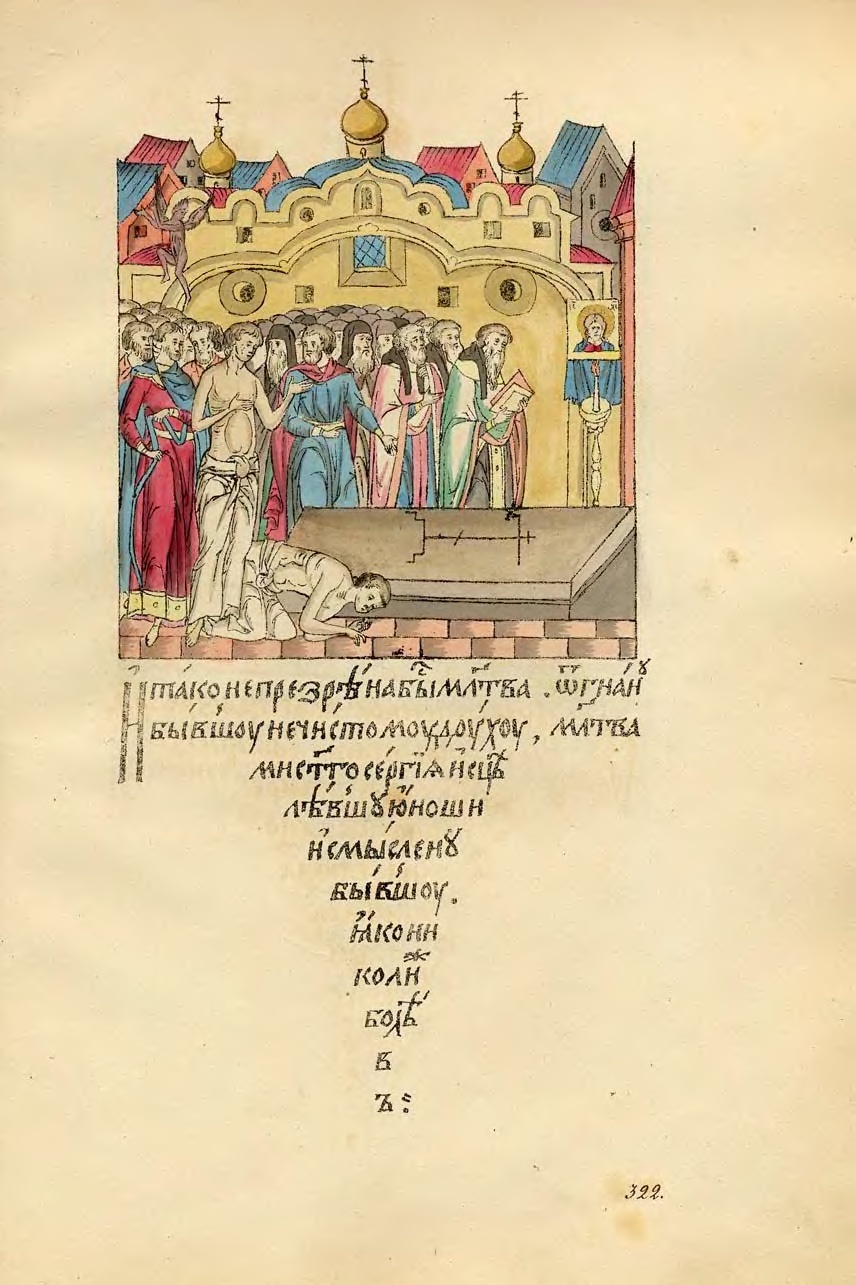 И҆ тáко не презрѣ́на бы́сть мл҃тва . ѿгнáнꙋ
бы́вшоу нечи́стомоу дꙋ́хоу , мл҃тва
ми ст҃го се́ргїѧ и҆сцѣ
лѣ́вшꙋ ю҆́ноши
не смы́сленꙋ
бы́вшоу .
ꙗ҆́ко ни
коли́ж
болѣ́
в
ъ :
322.